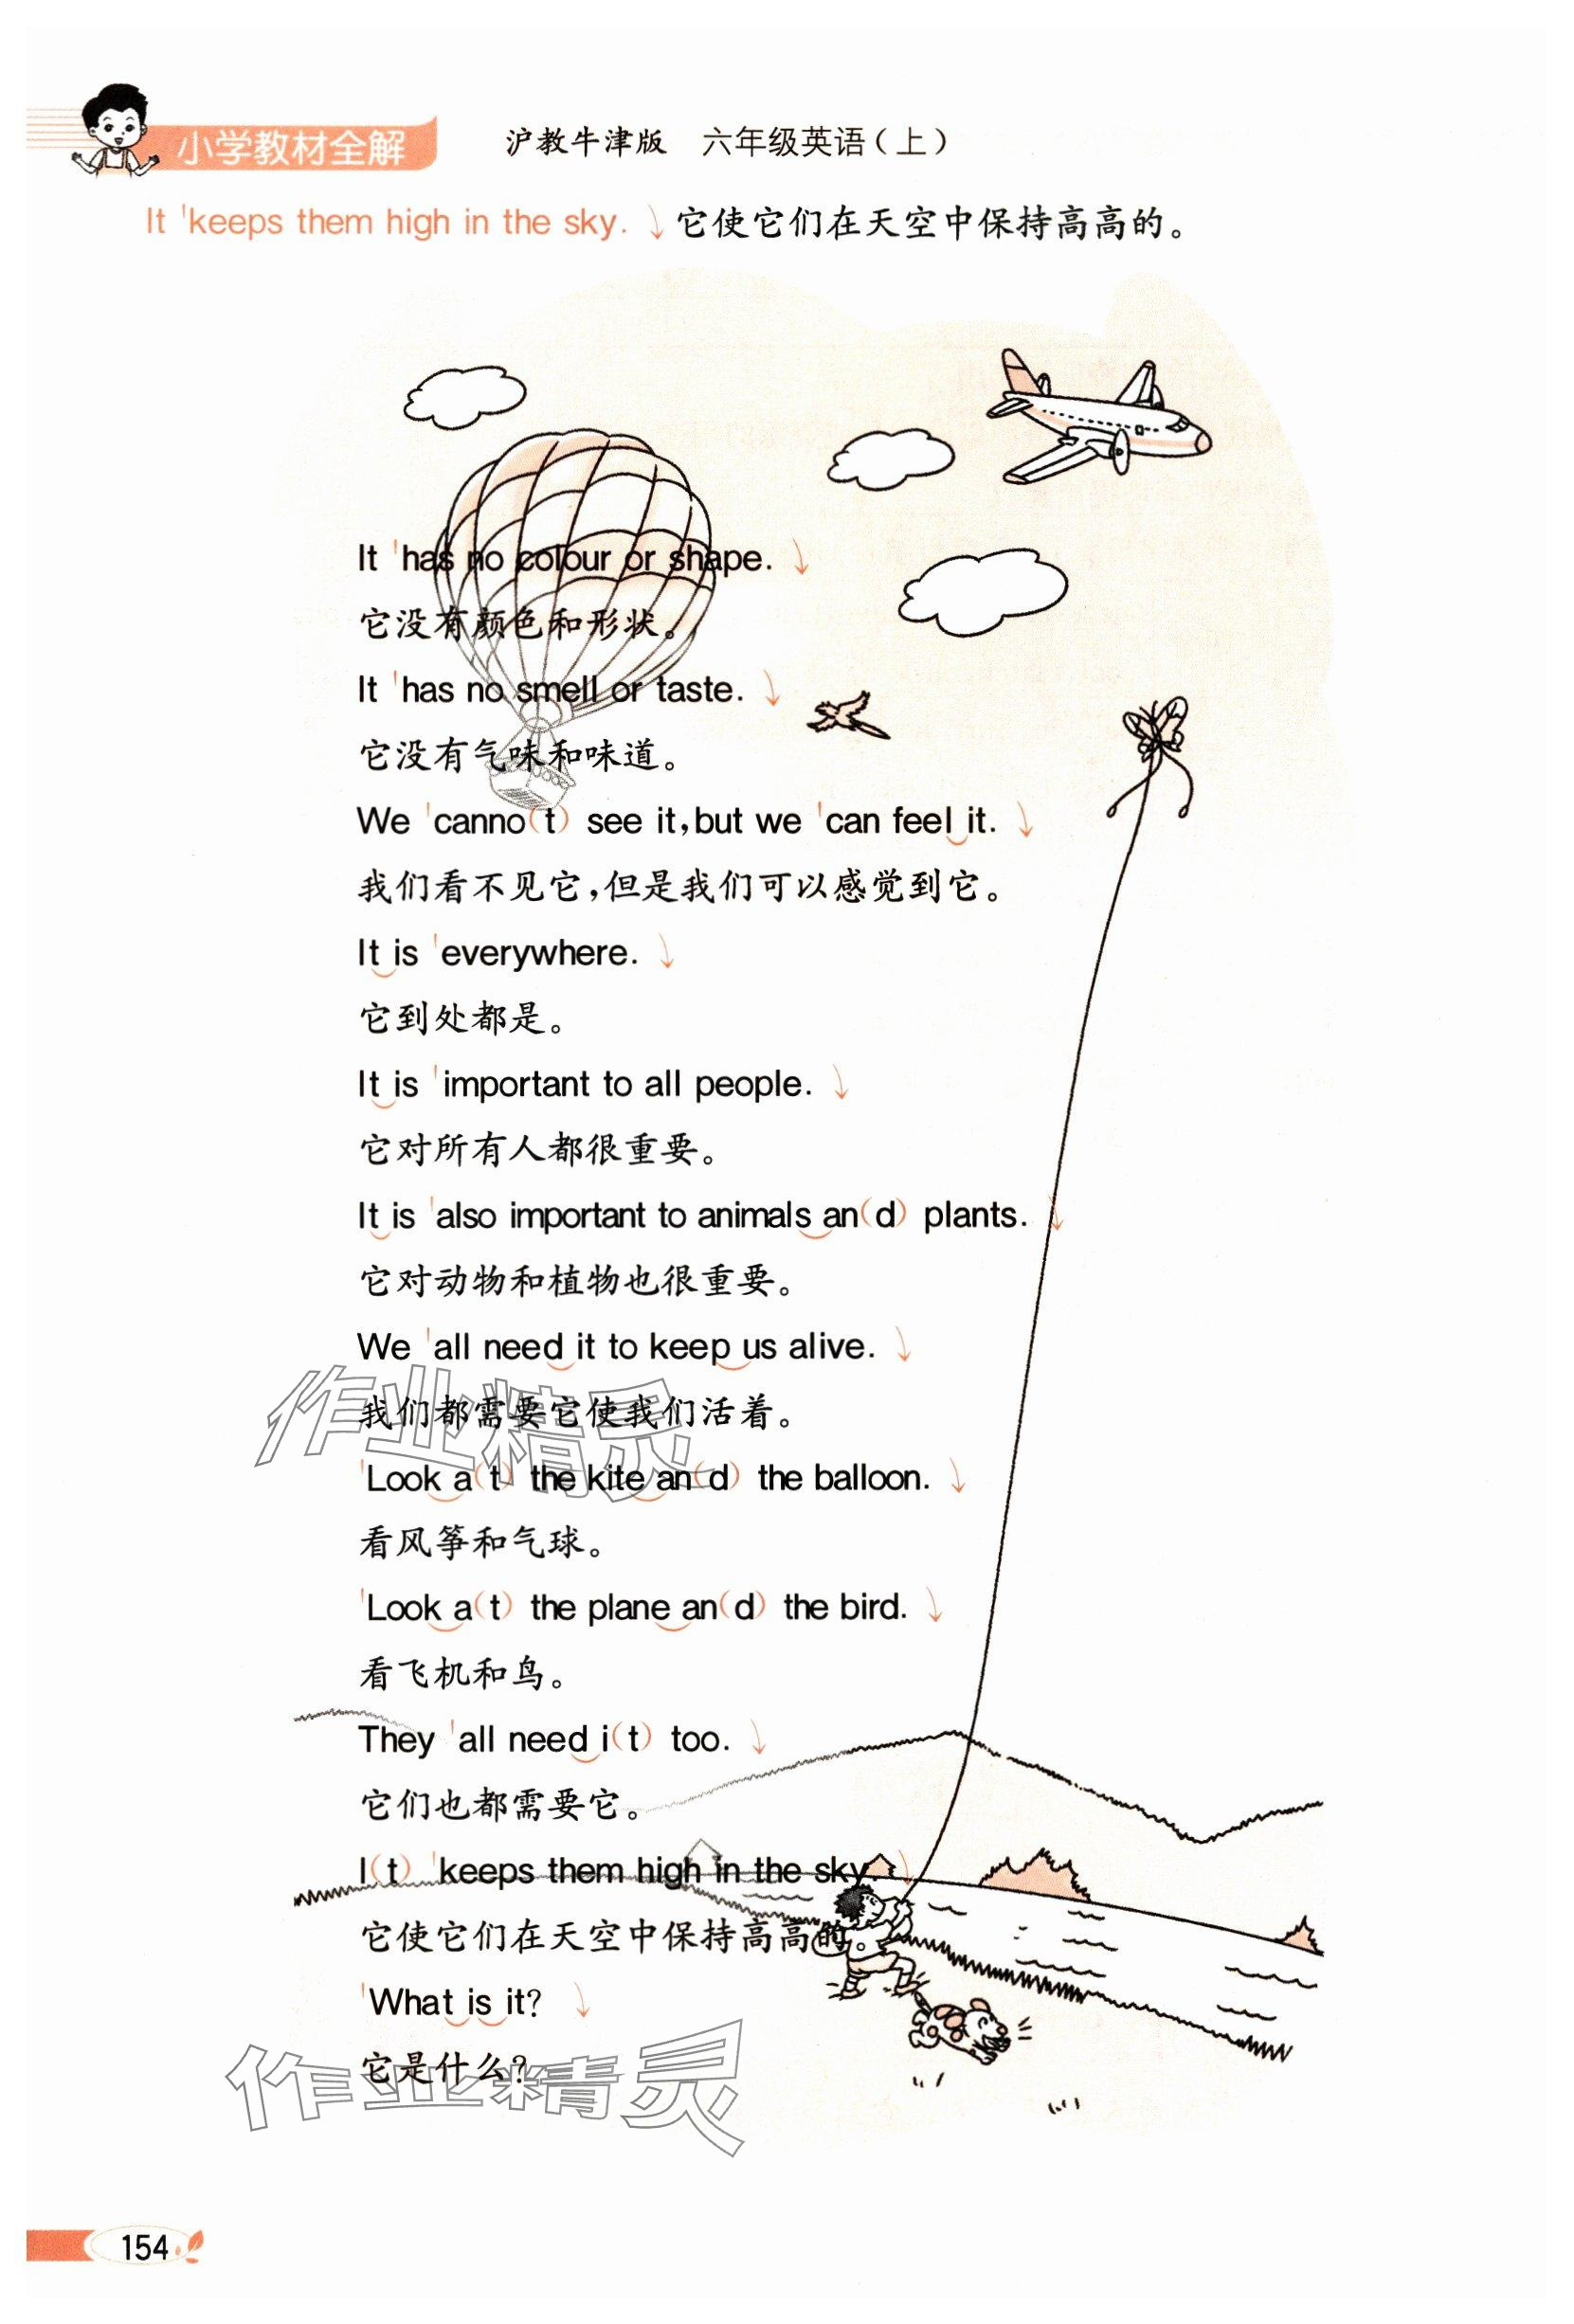 小学教材全解 沪教牛津版 六年级英语(上)
It 'keeps them high in the sky. ↘ 它使它们在天空中保持高高的。
It 'has no colour or shape. ↘
它没有颜色和形状。
It 'has no smell or taste. ↘
它没有气味和味道。
We 'canno(t) see it, but we 'can feel it. ↘
我们看不见它,但是我们可以感觉到它。
It is 'everywhere. ↘
它到处都是。
It is 'important to all people. ↘
它对所有人都很重要。
It is 'also important to animals an(d) plants. ↘
它对动物和植物也很重要。
We 'all need it to keep us alive. ↘
我们都需要它使我们活着。
'Look a(t) the kite an(d) the balloon. ↘
看风筝和气球。
'Look a(t) the plane an(d) the bird. ↘
看飞机和鸟。
They 'all need i(t) too. ↘
它们也都需要它。
I(t) 'keeps them high in the sky. ↘
它使它们在天空中保持高高的。
'What is it? ↘
它是什么?
作业精灵
作业精灵
154